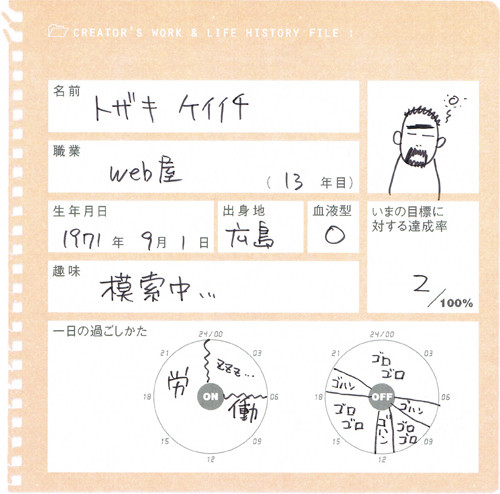 CREATOR'S WORK & LIFE HISTORY FILE :
名前
トザキ ケイイチ
職業
web屋
( 13 年目)
生年月日
1971 年 9 月 1 日
出身地
広島
血液型
O
いまの目標に
対する達成率
2/100%
趣味
模索中...
一日の過ごしかた
24/00
03
06
09
12
15
18
21
ON
zzz...
労
働
24/00
03
06
09
12
15
18
21
OFF
ゴロ
ゴロ
ゴハン
ゴロ
ゴロ
ゴハン
ゴロ
ゴロ
ゴハン